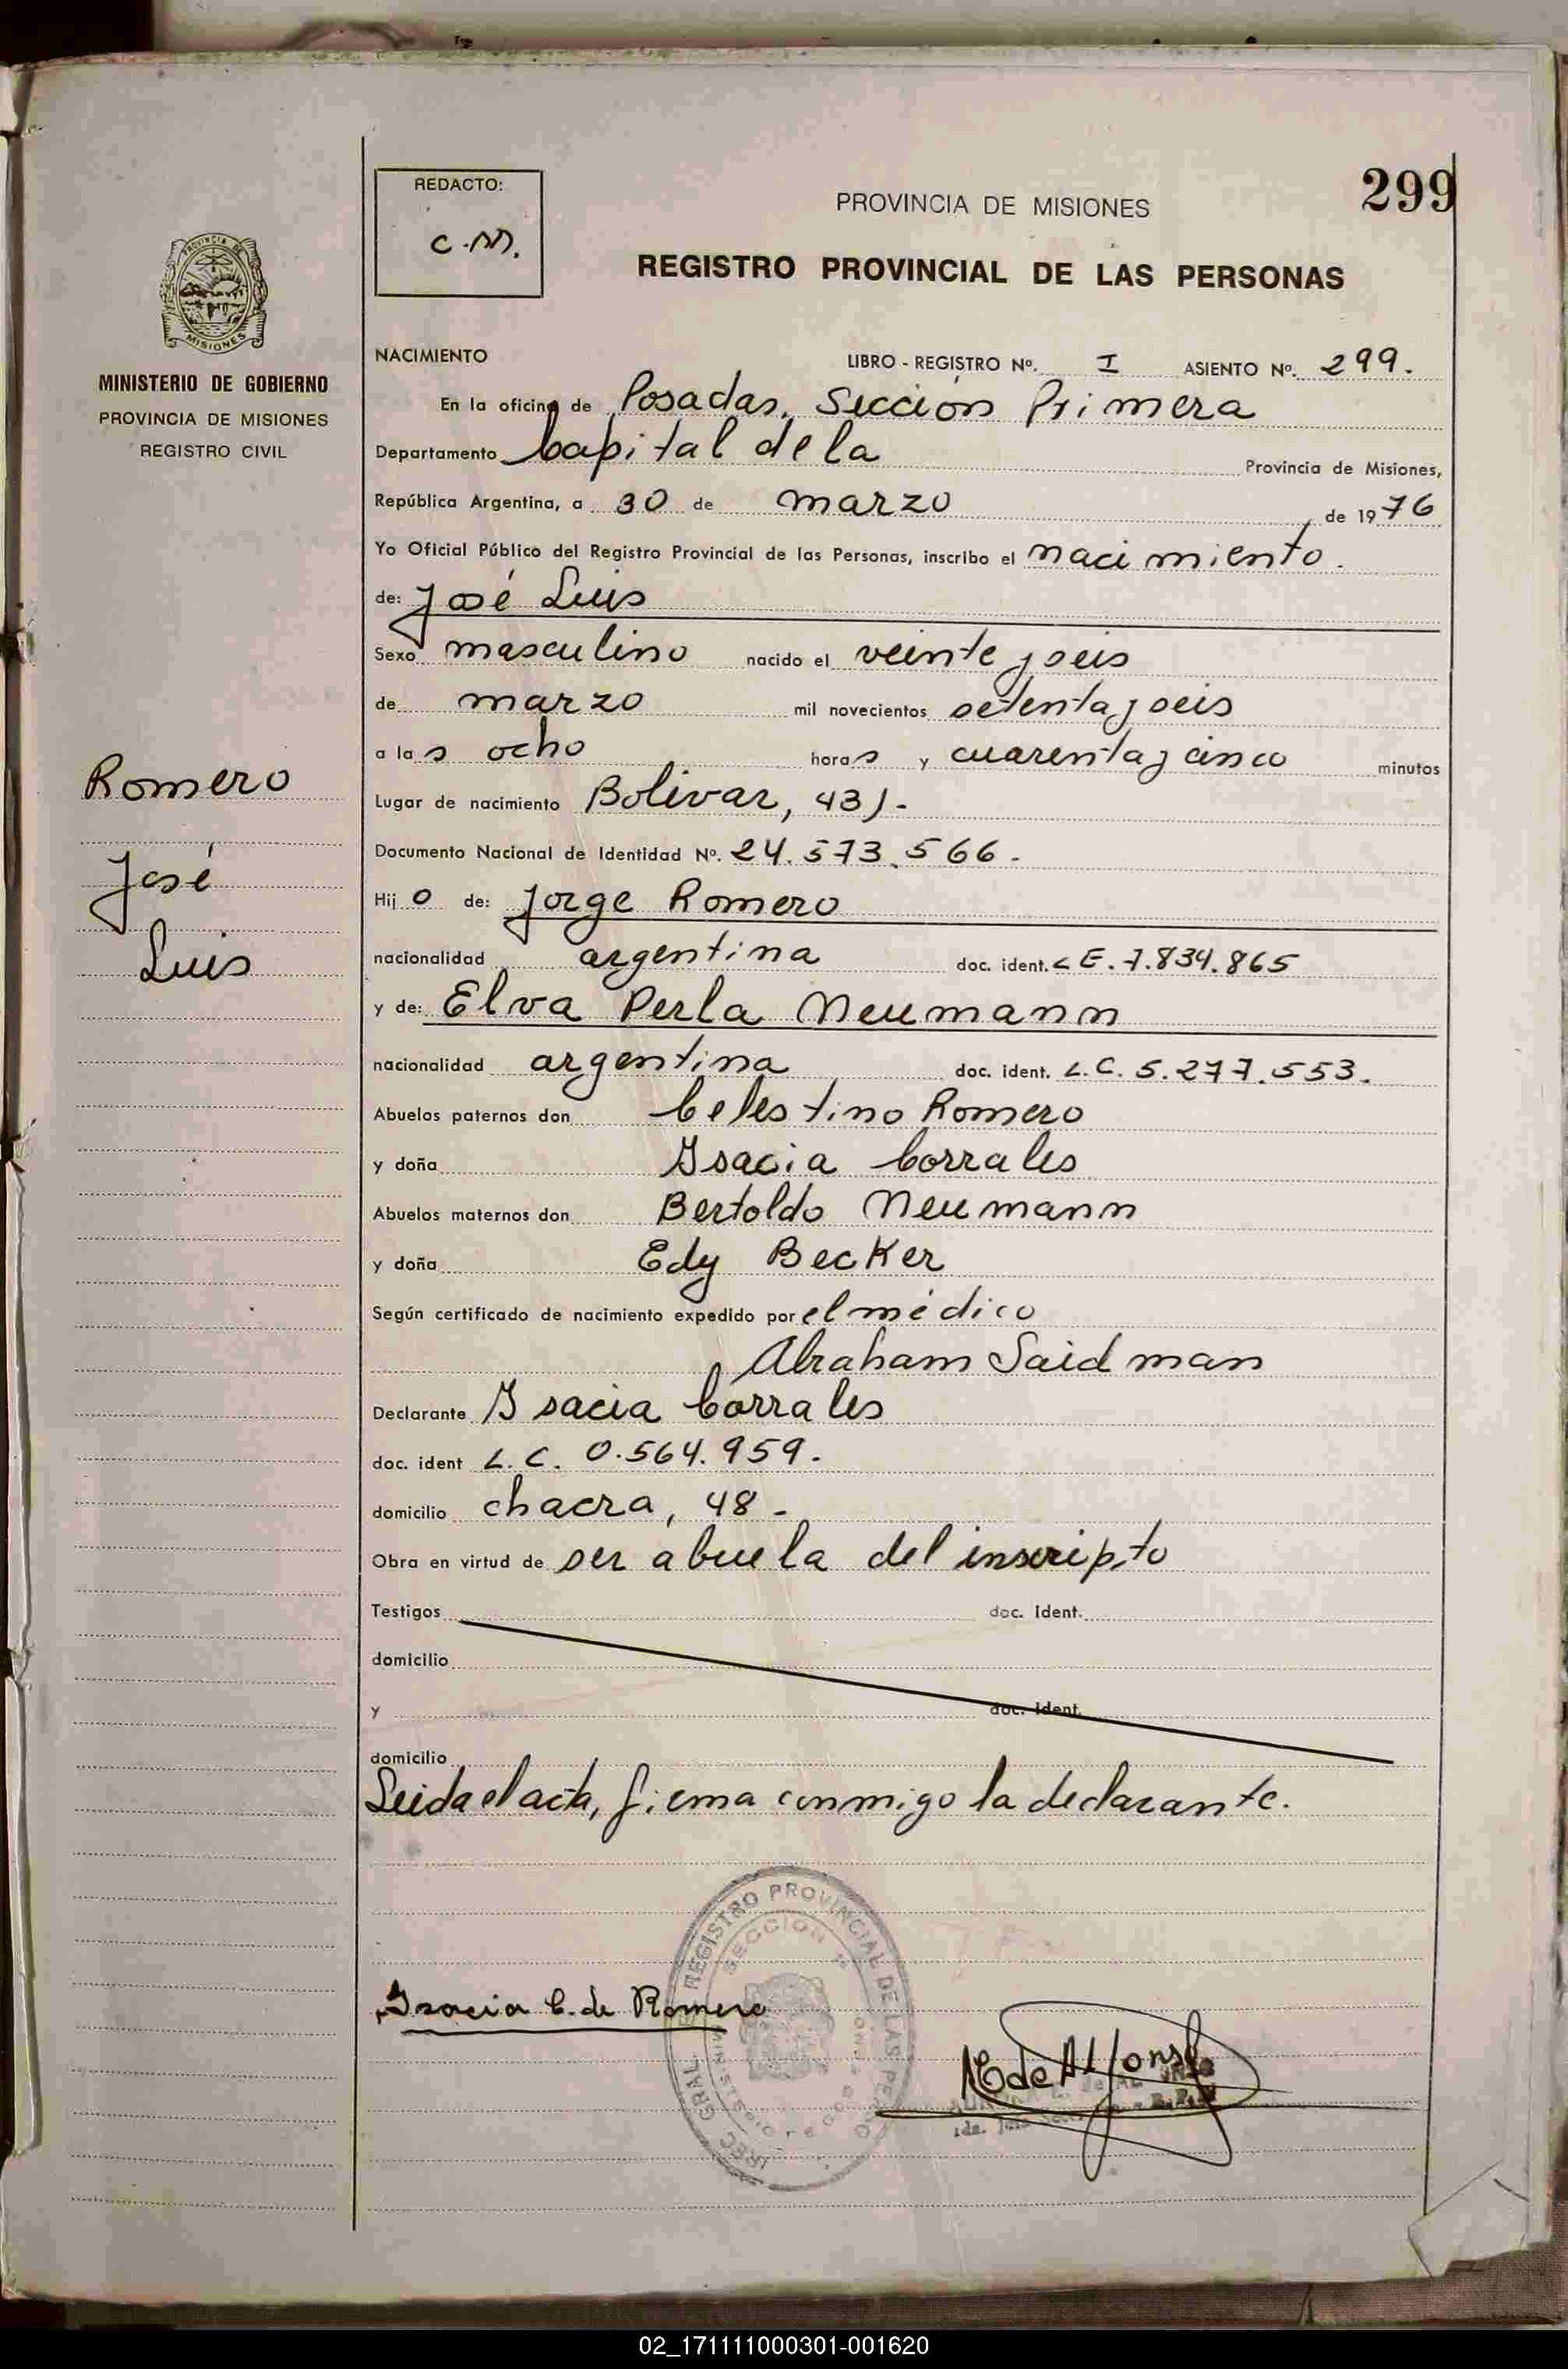 299
REDACTO:
C.M.
PROVINCIA DE MISIONES
REGISTRO PROVINCIAL DE LAS PERSONAS
MISIONES
MINISTERIO DE GOBIERNO
PROVINCIA DE MISIONES
REGISTRO CIVIL
Romero
José
Luis
NACIMIENTO LIBRO - REGISTRO Nº. I ASIENTO Nº. 299.
En la oficina de Posadas, Sección Primera
Departamento Capital de la Provincia de Misiones,
República Argentina, a 30 de marzo de 1976
Yo Oficial Público del Registro Provincial de las Personas, inscribo el nacimiento.
de: José Luis
Sexo masculino nacido el veinte y seis
de marzo mil novecientos setenta y seis
a las ocho horas y cuarenta y cinco minutos
Lugar de nacimiento Bolívar, 431.-
Documento Nacional de Identidad Nº. 24.573.566.-
Hijo de: Jorge Romero
nacionalidad argentina doc. ident. L E. 7.834.865
y de: Elva Perla Neumann
nacionalidad argentina doc. ident. L.C. 5.277.553.
Abuelos paternos don Celestino Romero
y doña Isacia Corrales
Abuelos maternos don Bertoldo Neumann
y doña Edy Becker
Según certificado de nacimiento expedido por el médico
Abraham Saidman
Declarante Isacia Corrales
doc. ident L.C. 0.564.959.
domicilio chacra, 48 -
Obra en virtud de ser abuela del inscripto
Testigos doc. ident.
domicilio
y doc. ident.
domicilio
Leida el acta, firma conmigo la declarante.
REGISTRO PROVINCIAL DE LAS PERSO
SECCION
Isacia C. de Romero
02_171111000301-001620